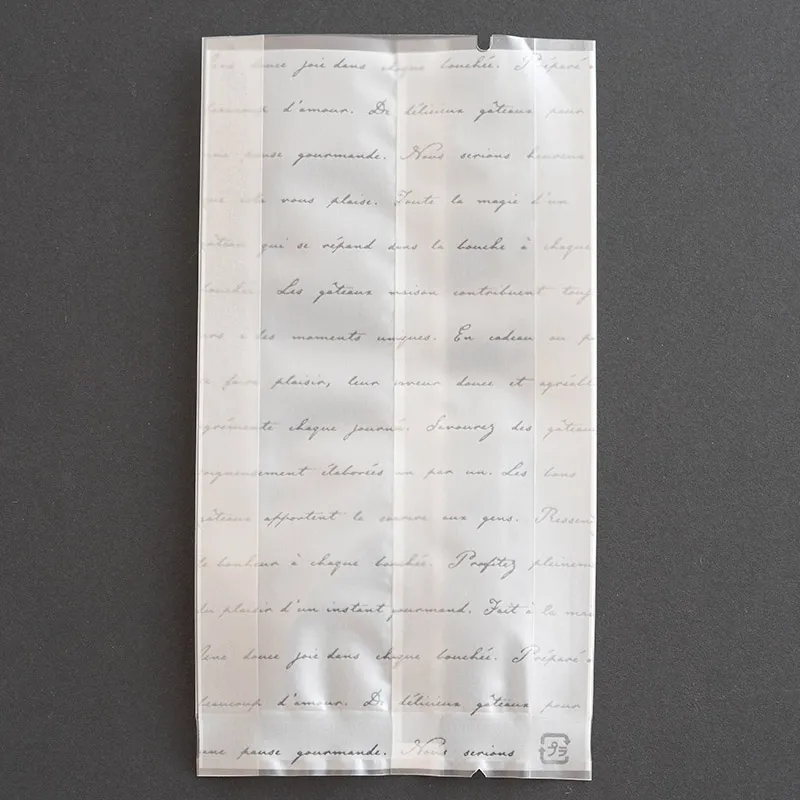 Une douce joie dans chaque bouchée. Préparé
beaucoup d'amour. De délicieux gâteaux pour
une pause gourmande. Nous serions heureux
que cela vous plaise. Toute la magie d'un
gâteau qui se répand dans la bouche à chaque
bouchée. Les gâteaux maison contribuent touj
urs à des moments uniques. En cadeau ou p
se faire plaisir, leur saveur douce et agréabl
agrémente chaque journée. Savourez des gâteau
soigneusement élaborés un par un. Les bons
gâteaux apportent le sourire aux gens. Ressen
le bonheur à chaque bouchée. Profitez pleinem
du plaisir d'un instant gourmand. Fait à la ma
Une douce joie dans chaque bouchée. Préparé
beaucoup d'amour. De délicieux gâteaux pour
une pause gourmande. Nous serions
プラ